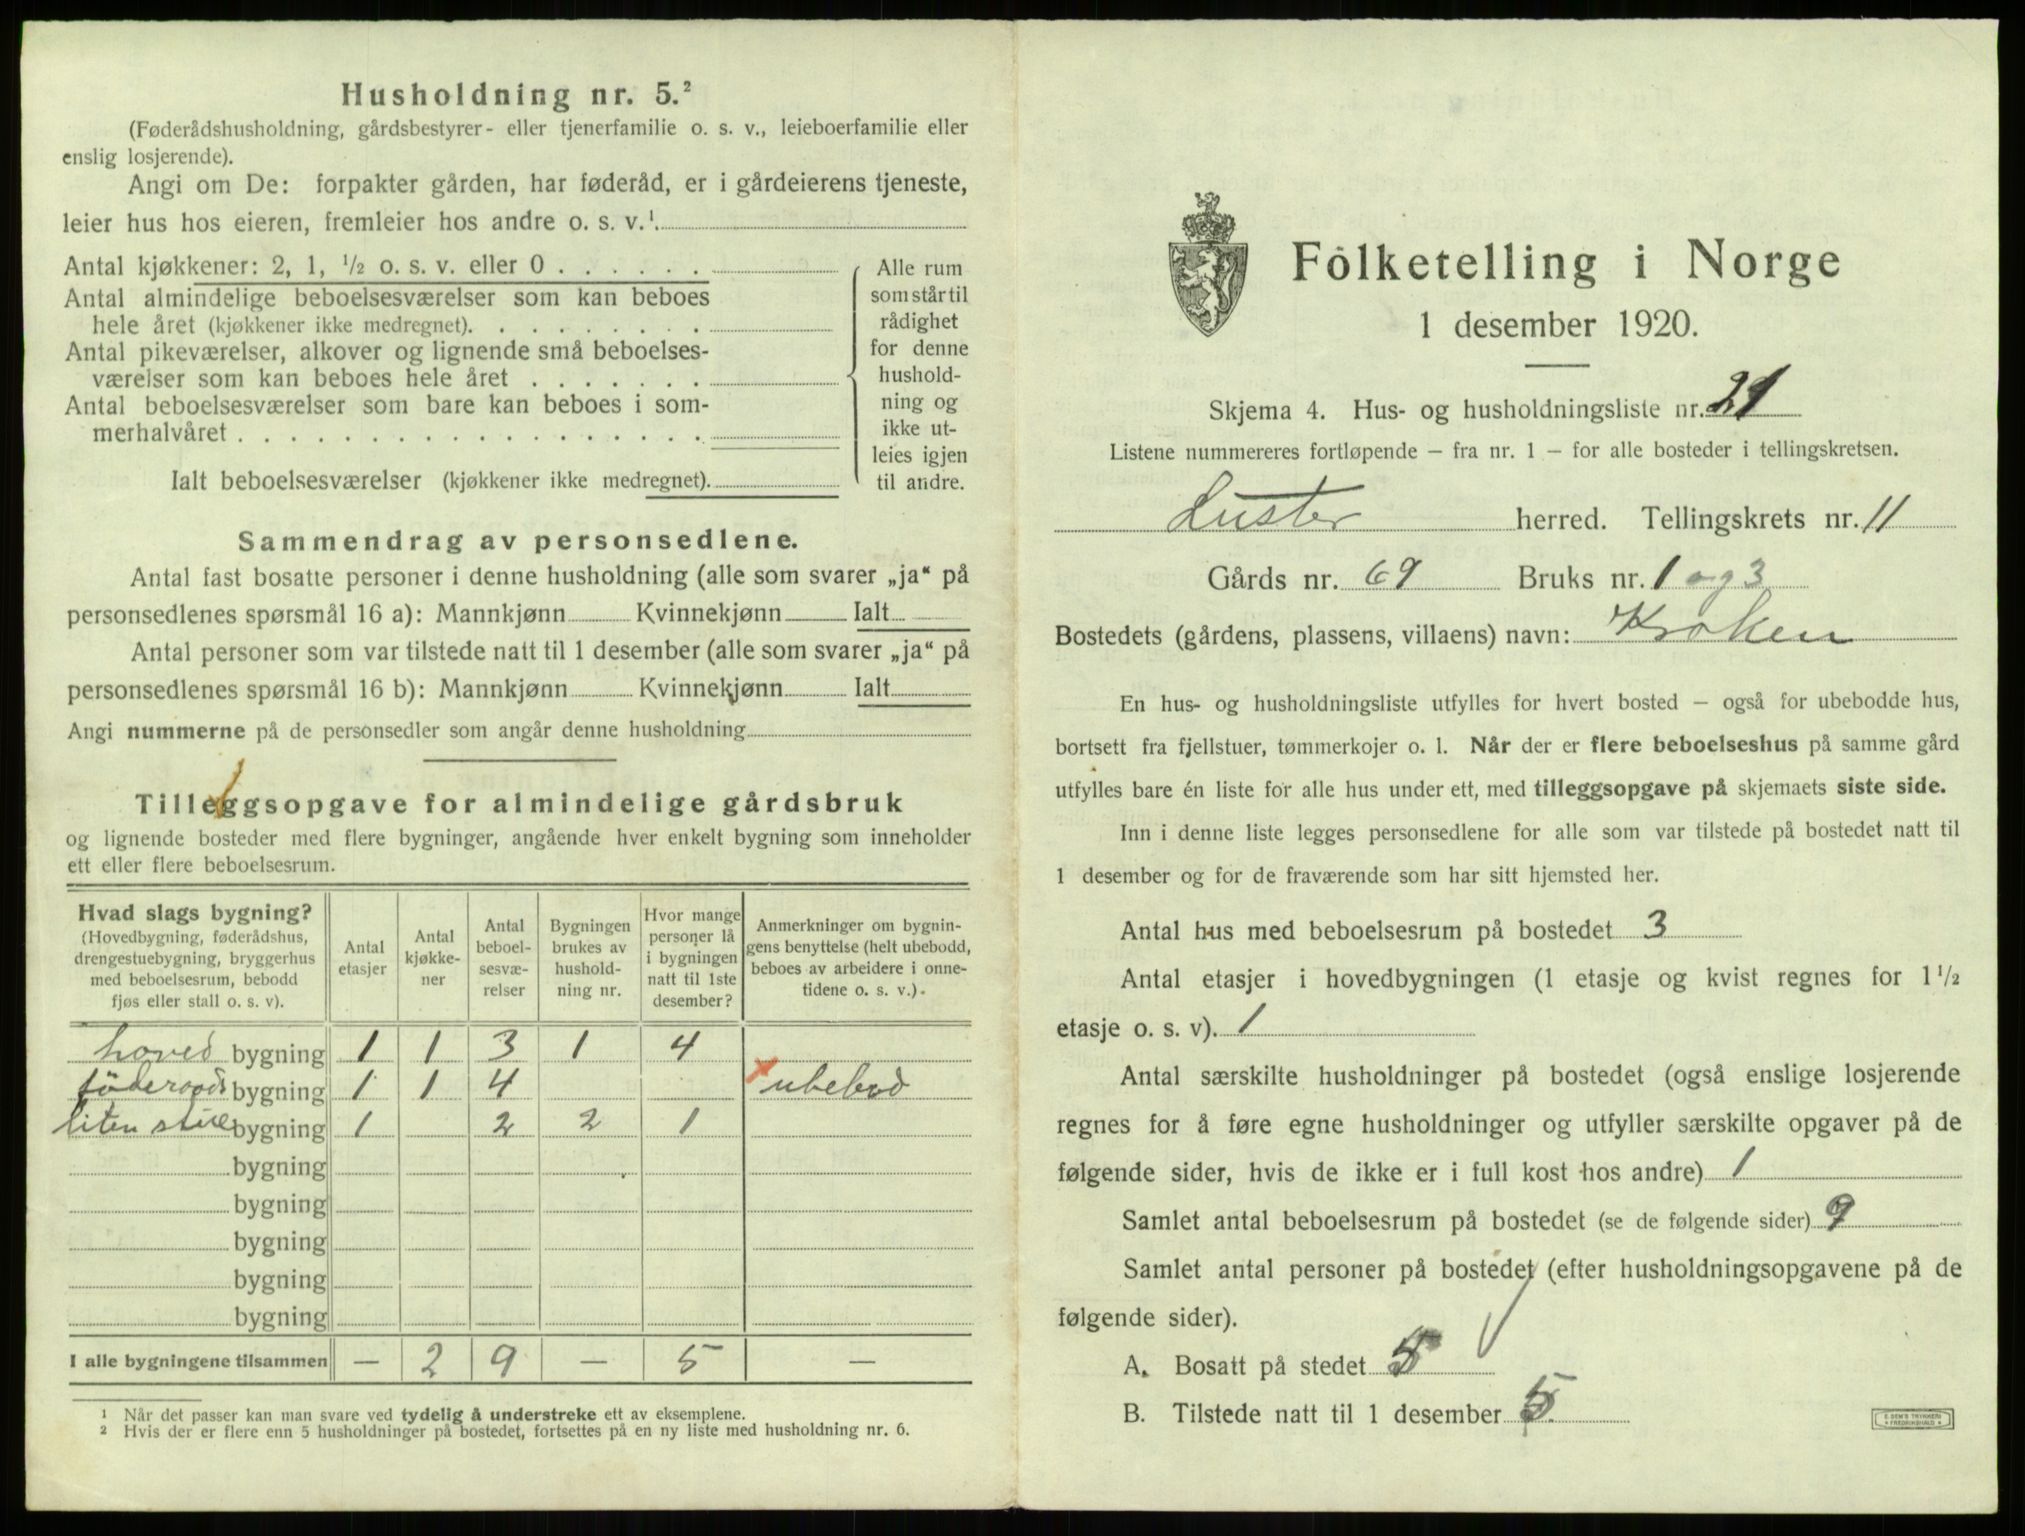 Husholdning nr. 5.²
(Føderådshusholdning, gårdsbestyrer- eller tjenerfamilie o. s. v., leieboerfamilie eller
enslig losjerende).
Angi om De: forpakter gården, har føderåd, er i gårdeierens tjeneste,
leier hus hos eieren, fremleier hos andre o. s. v.¹
Antal kjøkkener: 2, 1, ½ o. s. v. eller 0 . . . . . .
Antal almindelige beboelsesværelser som kan beboes
hele året (kjøkkener ikke medregnet). . . . . . . . .
Antal pikeværelser, alkover og lignende små beboelses-
værelser som kan beboes hele året . . . . . . .
Antal beboelsesværelser som bare kan beboes i som-
merhalvåret . . . . . . . . . . . . . . . . . .
Ialt beboelsesværelser (kjøkkener ikke medregnet).
Alle rum
som står til
rådighet
for denne
hushold-
ning og
ikke ut-
leies igjen
til andre.
Sammendrag av personsedlene.
Antal fast bosatte personer i denne husholdning (alle som svarer „ja“ på
personsedlenes spørsmål 16 a): Mannkjønn Kvinnekjønn Ialt
Antal personer som var tilstede natt til 1 desember (alle som svarer „ja“ på
personsedlenes spørsmål 16 b): Mannkjønn Kvinnekjønn Ialt
Angi nummerne på de personsedler som angår denne husholdning
Tilleggsopgave for almindelige gårdsbruk
og lignende bosteder med flere bygninger, angående hver enkelt bygning som inneholder
ett eller flere beboelsesrum.
Hvad slags bygning?
(Hovedbygning, føderådshus,
drengestuebygning, bryggerhus
med beboelsesrum, bebodd
fjøs eller stall o. s. v).
Antal
etasjer
Antal
kjøkke-
ner
Antal
beboel-
sesvæ-
relser
Bygningen
brukes av
hushold-
ning nr.
Hvor mange
personer lå
i bygningen
natt til 1ste
desember?
Anmerkninger om bygnin-
gens benyttelse (helt ubebodd,
beboes av arbeidere i onne-
tidene o. s. v.).
hoved bygning 1 1 3 1 4
föderaads bygning 1 1 4 × ubebod
liten stue bygning 1 2 2 1
bygning
bygning
bygning
bygning
bygning
I alle bygningene tilsammen — 2 9 — 5 —
¹ Når det passer kan man svare ved tydelig å understreke ett av eksemplene.
² Hvis der er flere enn 5 husholdninger på bostedet, fortsettes på en ny liste med husholdning nr. 6.
Folketelling i Norge
1 desember 1920.
Skjema 4. Hus- og husholdningsliste nr. 21
Listene nummereres fortløpende – fra nr. 1 – for alle bosteder i tellingskretsen.
Luster herred. Tellingskrets nr. 11
Gårds nr. 69 Bruks nr. 1 og 3
Bostedets (gårdens, plassens, villaens) navn: Kroken
En hus- og husholdningsliste utfylles for hvert bosted – også for ubebodde hus,
bortsett fra fjellstuer, tømmerkojer o. l. Når der er flere beboelseshus på samme gård
utfylles bare én liste for alle hus under ett, med tilleggsopgave på skjemaets siste side.
Inn i denne liste legges personsedlene for alle som var tilstede på bostedet natt til
1 desember og for de fraværende som har sitt hjemsted her.
Antal hus med beboelsesrum på bostedet 3
Antal etasjer i hovedbygningen (1 etasje og kvist regnes for 1 ½
etasje o. s. v). 1
Antal særskilte husholdninger på bostedet (også enslige losjerende
regnes for å føre egne husholdninger og utfyller særskilte opgaver på de
følgende sider, hvis de ikke er i full kost hos andre) 1
Samlet antal beboelsesrum på bostedet (se de følgende sider) 9
Samlet antal personer på bostedet (efter husholdningsopgavene på de
følgende sider).
A. Bosatt på stedet 5
B. Tilstede natt til 1 desember 5
E. SEM'S TRYKKERI
FREDRIKSHALD